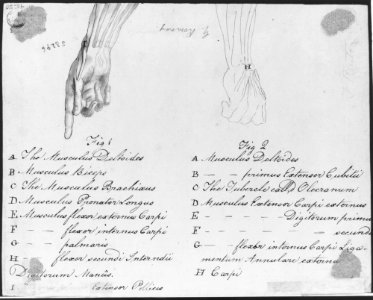 H
Fig 1
A The Musculus Deltoides
B Musculus Biceps
C The Musculus Brachiæus
D Musculus Pronator Longus
E Musculus flexor externus Carpi
F — — flexor internus Carpi
G — palmaris
H — flexor secundi Interndii
Digitorum Manûs.
I Extensor Pollicis
Fig 2
A Musculus Deltoides
B — — primus Extensor Cubitii
C The Tubercle call,d Olecranum
D Musculus Extensor Carpi externus
E — — — — Digitorum primus
F — — — — — secundus
G — — flexor internus Carpi Liga-
mentum Annulare externum
H Carpi